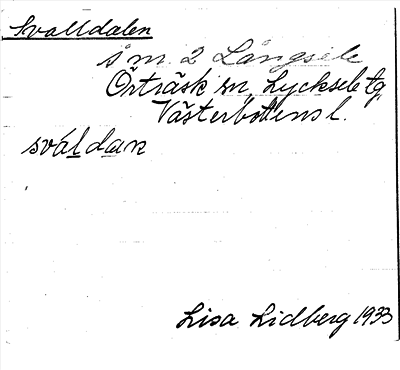 Svalldalen
å m. 2 Långsele
Örträsk sn, Lycksele tg
Västerbottens l.
sváldan
Lisa Lidberg 1933